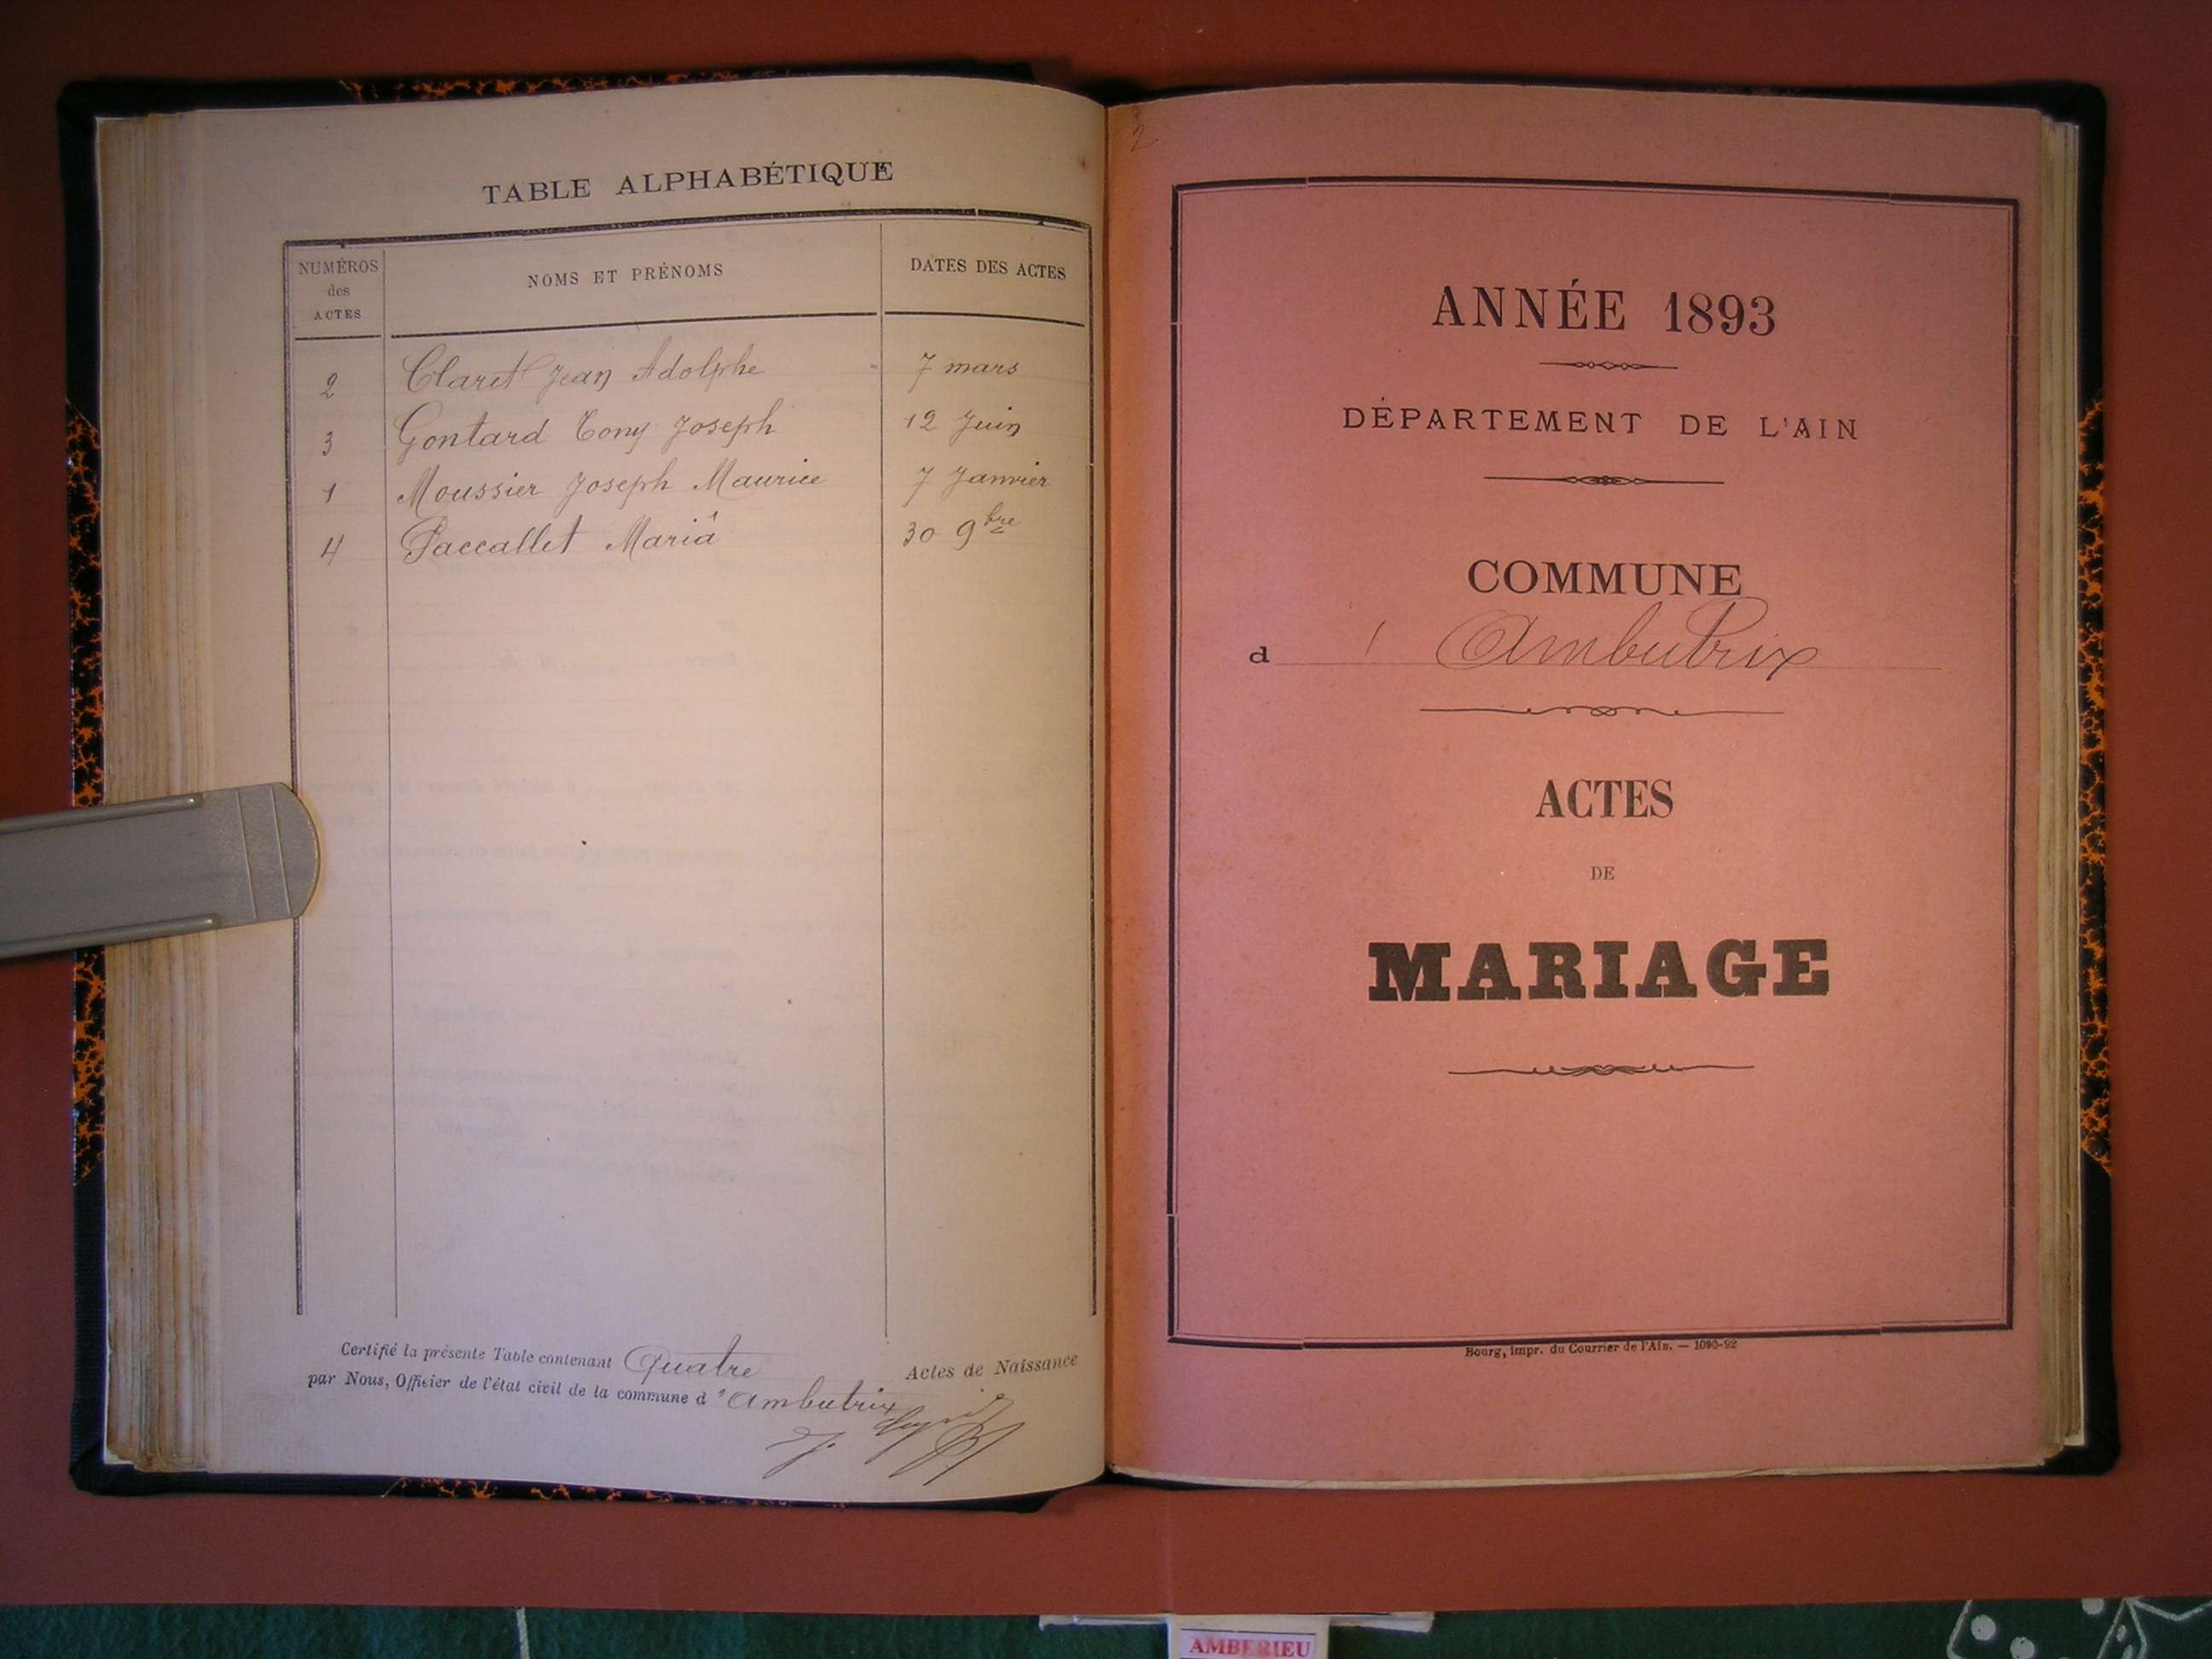 TABLE ALPHABÉTIQUE
NUMÉROS
des
ACTES
NOMS ET PRÉNOMS
DATES DES ACTES
2 Claret Jean Adolphe 7 mars
3 Gontard Tony Joseph 12 Juin
1 Moussier Joseph Maurice 7 Janvier
4 Paccallet Maria 30 9bre
Certifié la présente Table contenant Quatre Actes de Naissance
par Nous, Officier de l'état civil de la commune d'Ambutrix
2
ANNÉE 1893
DÉPARTEMENT DE L'AIN
COMMUNE
d'Ambutrix
ACTES
DE
MARIAGE
Bourg, impr. du Courrier de l'Ain. — 1090-92
AMBERIEU